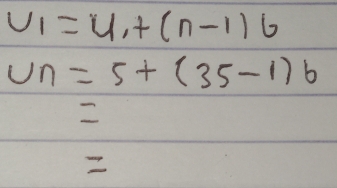 U1 = U1 + (n-1) 6
Un = 5 + (35-1) 6
=
=